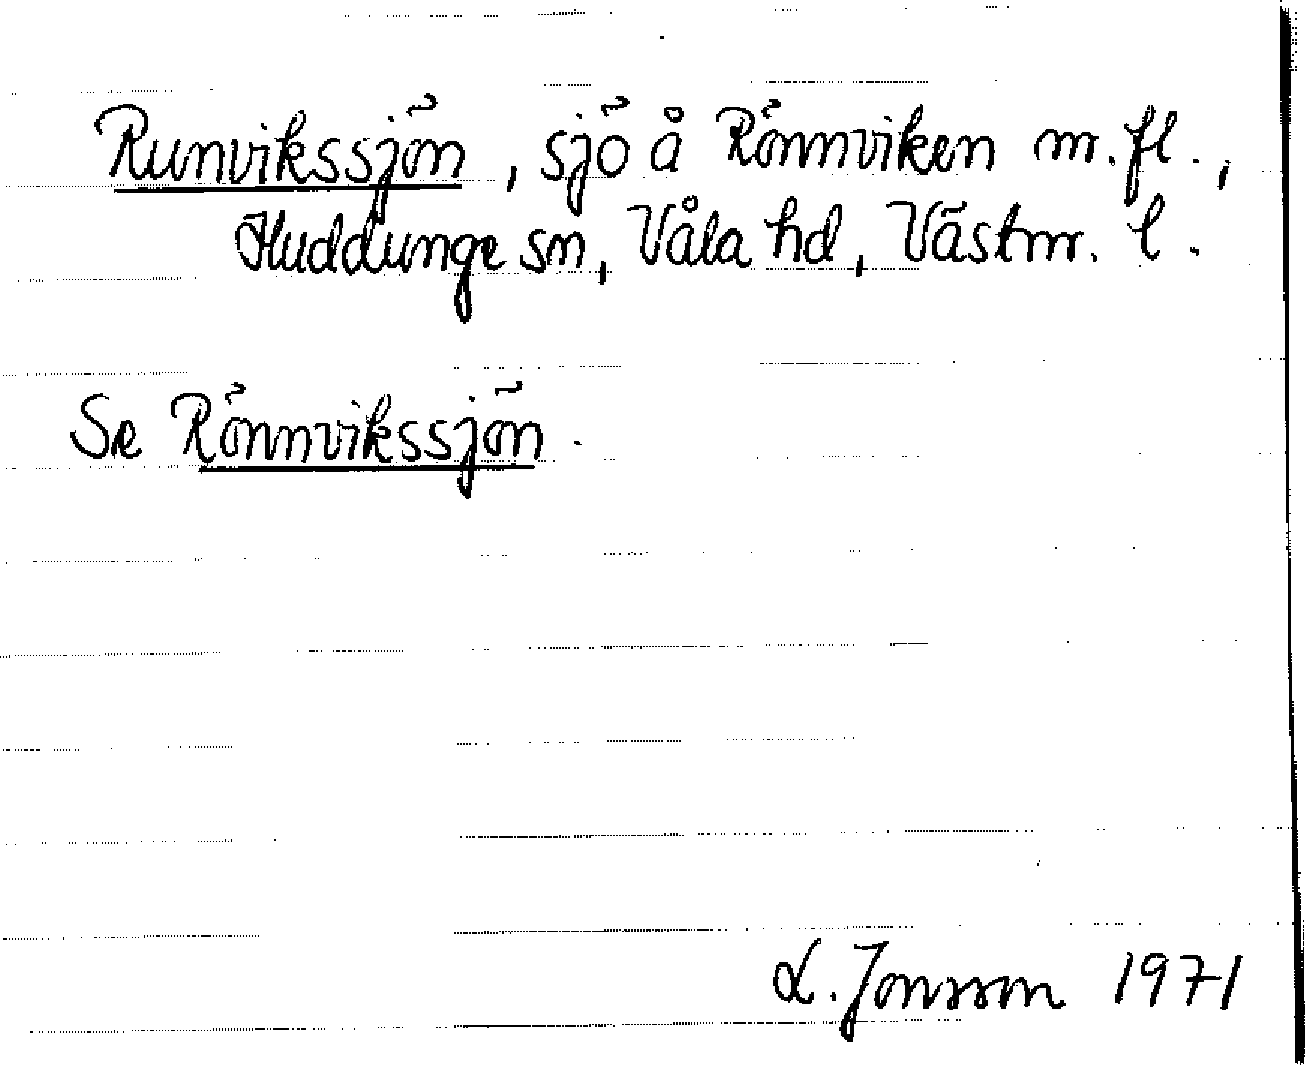 Runvikssjön, sjö å Rönnviken m.fl.,
Huddunge sn, Våla hd, Västm. l.
Se Rönnvikssjön.
L. Jonsson 1971